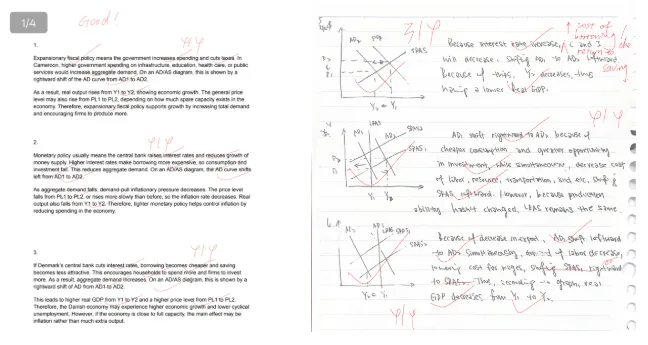 1/4
Good!
1.
4/4
Expansionary fiscal policy means the government increases spending and cuts taxes. In
Cameroon, higher government spending on infrastructure, education, health care, or public
services would increase aggregate demand. On an AD/AS diagram, this is shown by a
rightward shift of the AD curve from AD1 to AD2.
As a result, real output rises from Y1 to Y2, showing economic growth. The general price
level may also rise from PL1 to PL2, depending on how much spare capacity exists in the
economy. Therefore, expansionary fiscal policy supports growth by increasing total demand
and encouraging firms to produce more.
2.
4/4
Monetary policy usually means the central bank raises interest rates and reduces growth of
money supply. Higher interest rates make borrowing more expensive, so consumption and
investment fall. This reduces aggregate demand. On an AD/AS diagram, the AD curve shifts
left from AD1 to AD2.
As aggregate demand falls, demand-pull inflationary pressure decreases. The price level
falls from PL1 to PL2, or rises more slowly than before, so the inflation rate decreases. Real
output also falls from Y1 to Y2. Therefore, tighter monetary policy helps control inflation by
reducing spending in the economy.
3.
4/4
If Denmark's central bank cuts interest rates, borrowing becomes cheaper and saving
becomes less attractive. This encourages households to spend more and firms to invest
more. As a result, aggregate demand increases. On an AD/AS diagram, this is shown by a
rightward shift of AD from AD1 to AD2.
This leads to higher real GDP from Y1 to Y2 and a higher price level from PL1 to PL2.
Therefore, the Danish economy may experience higher economic growth and lower cyclical
unemployment. However, if the economy is close to full capacity, the main effect may be
inflation rather than much extra output.
3/4
↑ cost of
borrowing
the
return
saving
Because interest rate increase, C and I
will decrease, shifting AD1 to AD2 leftward
Because of this, Y2 decreases, thus
having a lower Real GDP.
SRAS
Y2 ← Y1
4/4
AD1 shift rightward to AD2 because of
cheaper consumption and greater opportunity
in investment, while simultaneous, decrease cost
of labor, resources, transportation, and etc, shifting
SRAS rightward. However, because production
ability hasn't changed, LRAS remains the same.
LRAS
AD2
SRAS2
SRAS1
Y1 Y2
Because of decrease in export, AD1 shift leftward
to AD2 simultaneously, demand of labor decrease,
lowering cost for wages, shifting SRAS1 rightward
to SRAS2. Thus, according to graph, real
GDP decreases from Y1 to Y2.
Y2 ← Y1
4/4